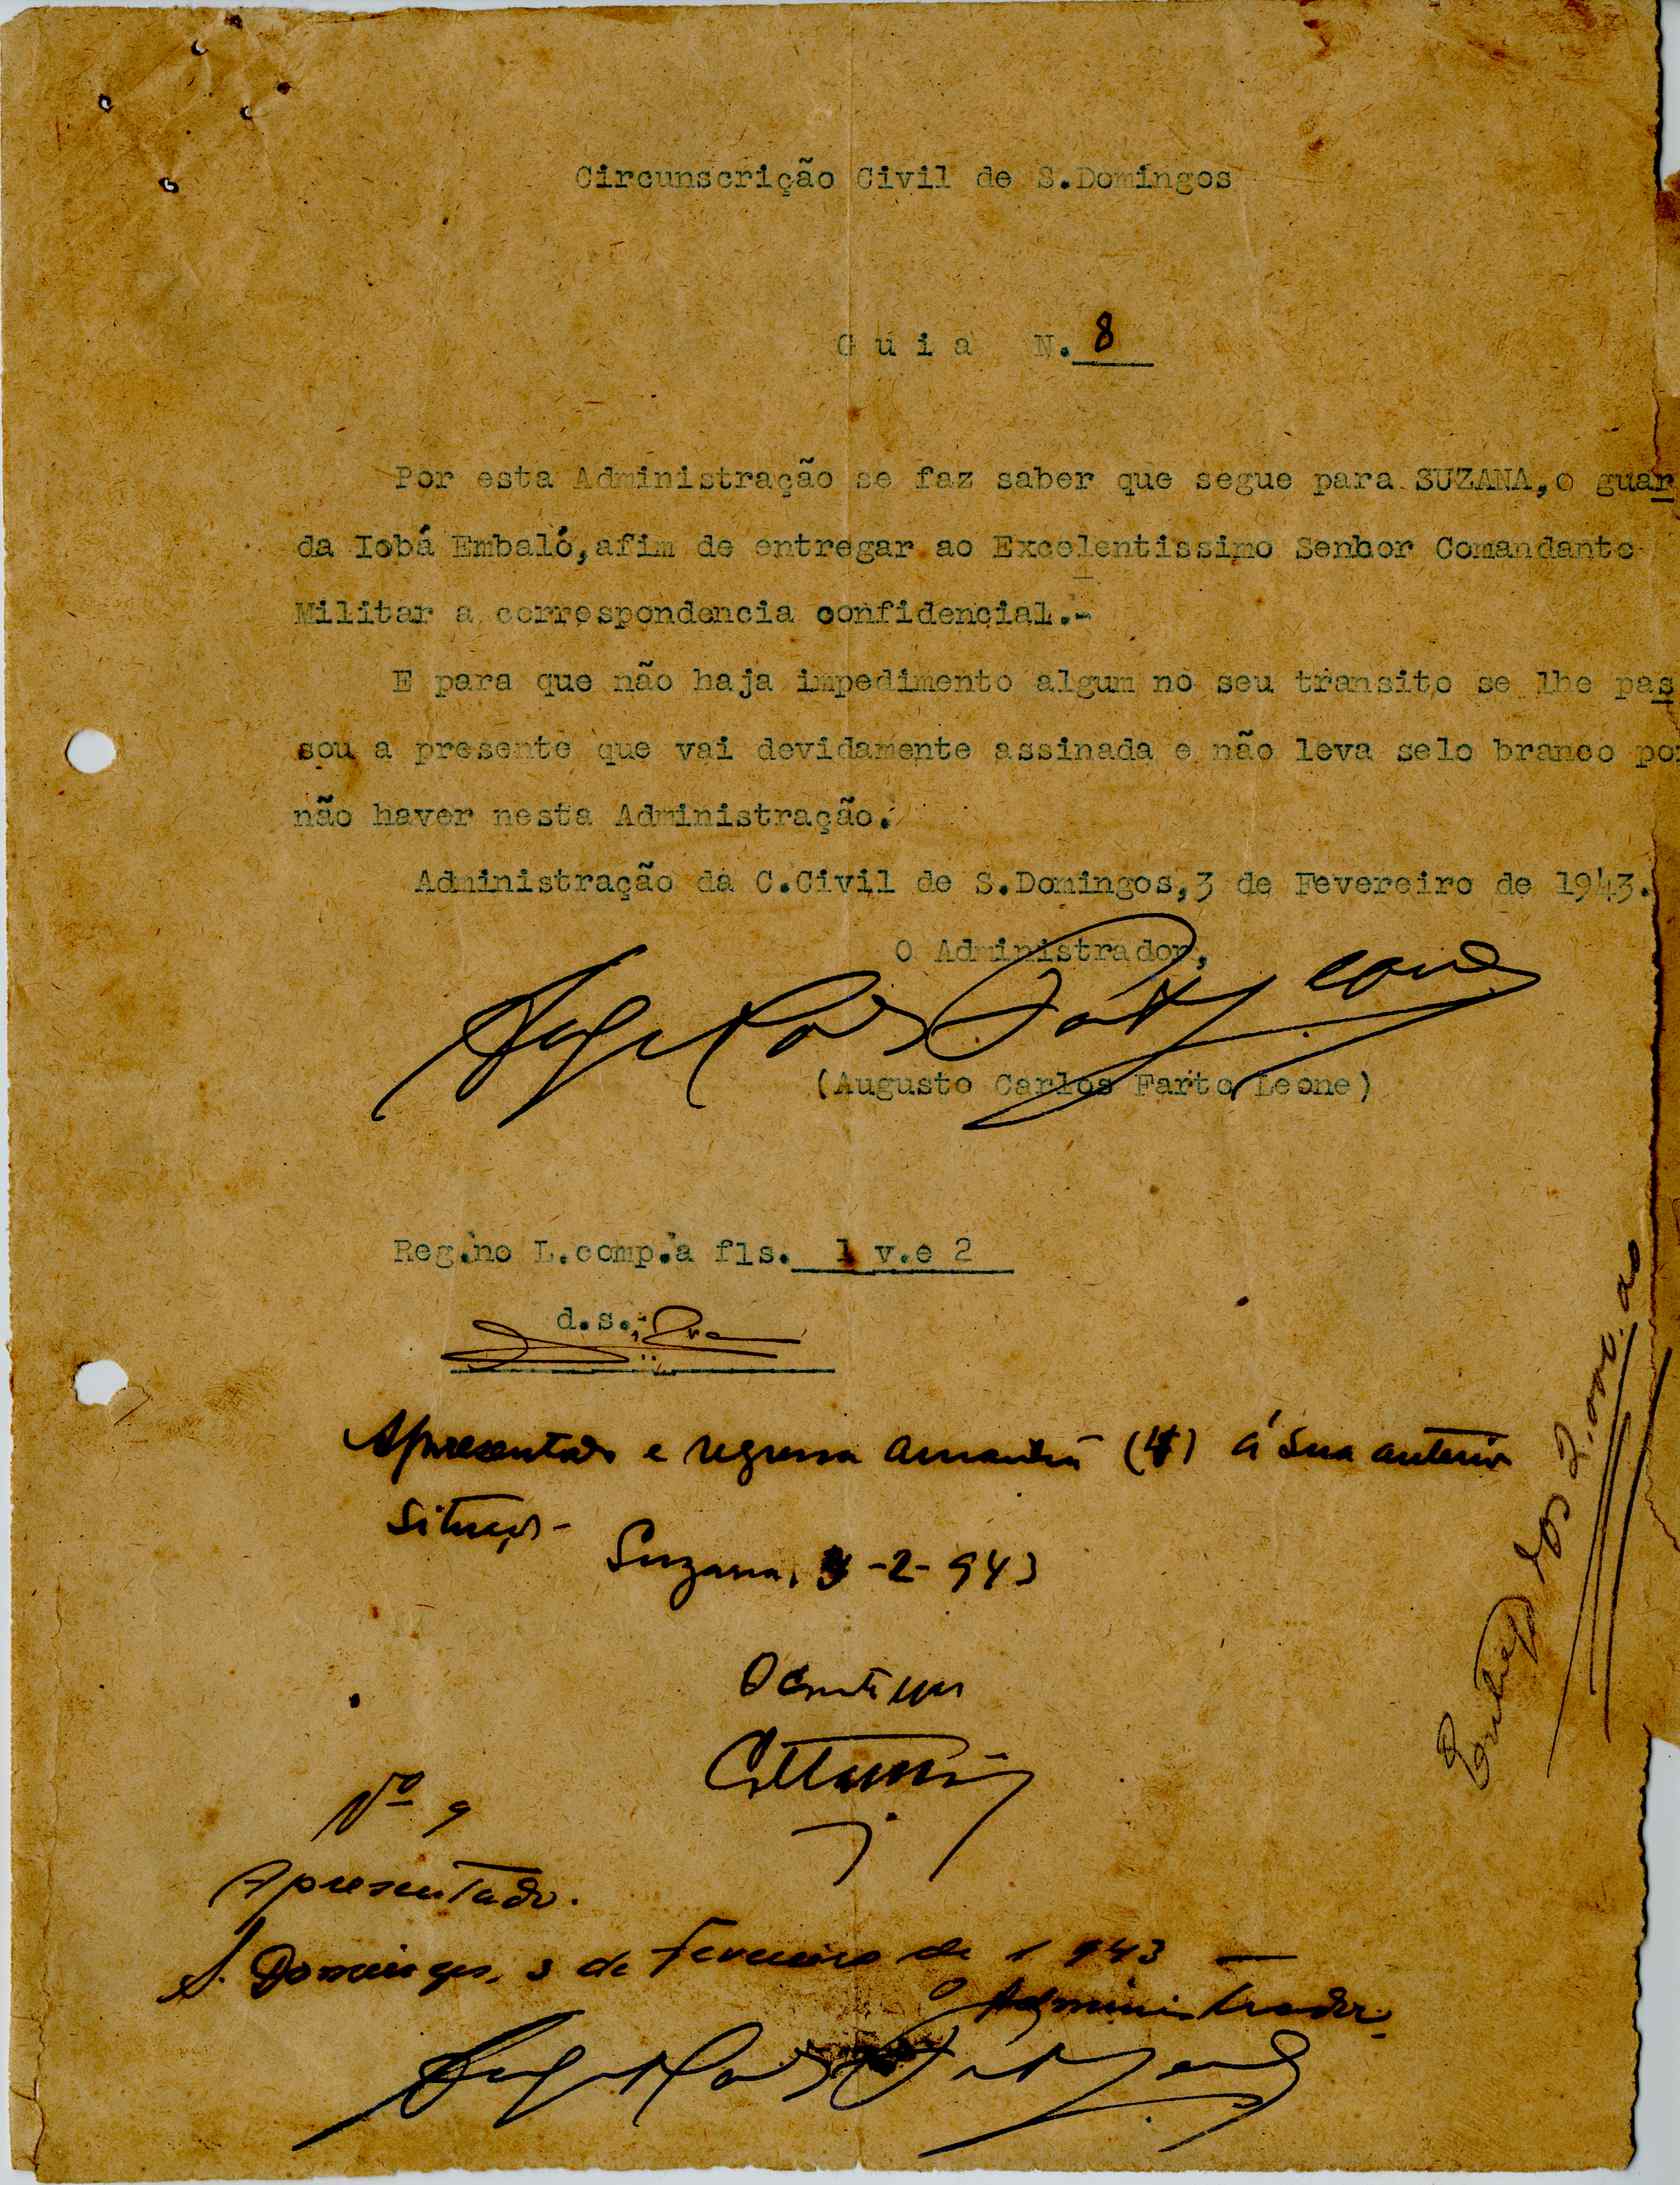 Circunscrição Civil de S.Domingos
G u i a N. 8
Por esta Administração se faz saber que segue para SUZANA,o guar
da Iobá Embaló,afim de entregar ao Excelentissimo Senhor Comandante
Militar a correspondencia confidencial.-
E para que não haja impedimento algum no seu transito se lhe pas
sou a presente que vai devidamente assinada e não leva selo branco por
não haver nesta Administração.
Administração da C.Civil de S.Domingos,3 de Fevereiro de 1943.
O Administrador,
(Augusto Carlos Farto Leone)
Reg.no L.comp.a fls. 1 v.e 2
d.s.
Apresentado e regressa amanhã (4) á sua anterior
situação-
Suzana, 3-2-943
Nº 9
Apresentado.
S. Domingos, 3 de Fevereiro de 1943
O Administrador